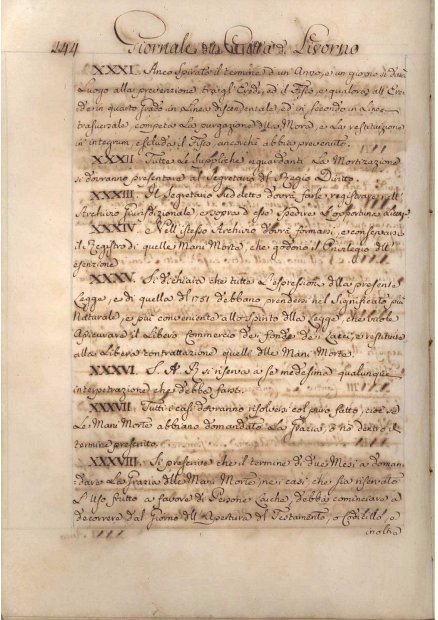 244 Giornale della Città di Livorno
XXXI. Anco Spirato il termine d'un Anno, e un giorno si darà
Luogo alla prevenzione tra gl'Eredi, ed il Fisco, e qualora all'Ere
de in quarto grado in Linea discendentale, ed in secondo in Linea
trasversale, competa La purgazione della Mora, e La restituzione
in integrum escluda il Fisco, ancorchè abbia prevenuto.
XXXII. Tutte Le Suppliche riguardanti La Mortizazione
si dovranno presentare al Segretario del Regio Diritto.
XXXIII. Il Segretario Sud.detto dovrà farle registrare nell'
Archivio Giurisdizionale, e sopra d'esso Spedire L'opportune
XXXIV. Nell'istesso Archivio dovrà formarsi, e conservarsi
il Registro di quelle Mani Morte, che godono il Privilegio dell'
esenzione.
XXXV. Si dichiara che tutte L'espressioni della presente
Legge, e di quella di 1751 debbano prendersi nel Significato più
Naturale, e più conveniente allo Spirito della Legge, che vuole
Assicurare il Libero Commercio de' fondi de i Laici, e restituire
alla Libera contrattazione quelli delle Mani Morte.
XXXVI. S. A. R. si riserva a se medesima qualunque
interpetrazione che debba farsi.
XXXVII. Tutti i casi dovranno risolversi col puro fatto, cioè se
Le Mani Morte abbiano domandato La Grazia, o nò dentro il
termine prescritto.
XXXVIII. Si prescrive che il termine di due Mesi a doman
dare La Grazia delle Mani Morte, ne i casi, che sia riservato
L'Uso frutto a favore di Persone Laiche, debba cominciare a
decorrere dal Giorno dell'Apertura del Testamento, o Codicillo, e
inoltre